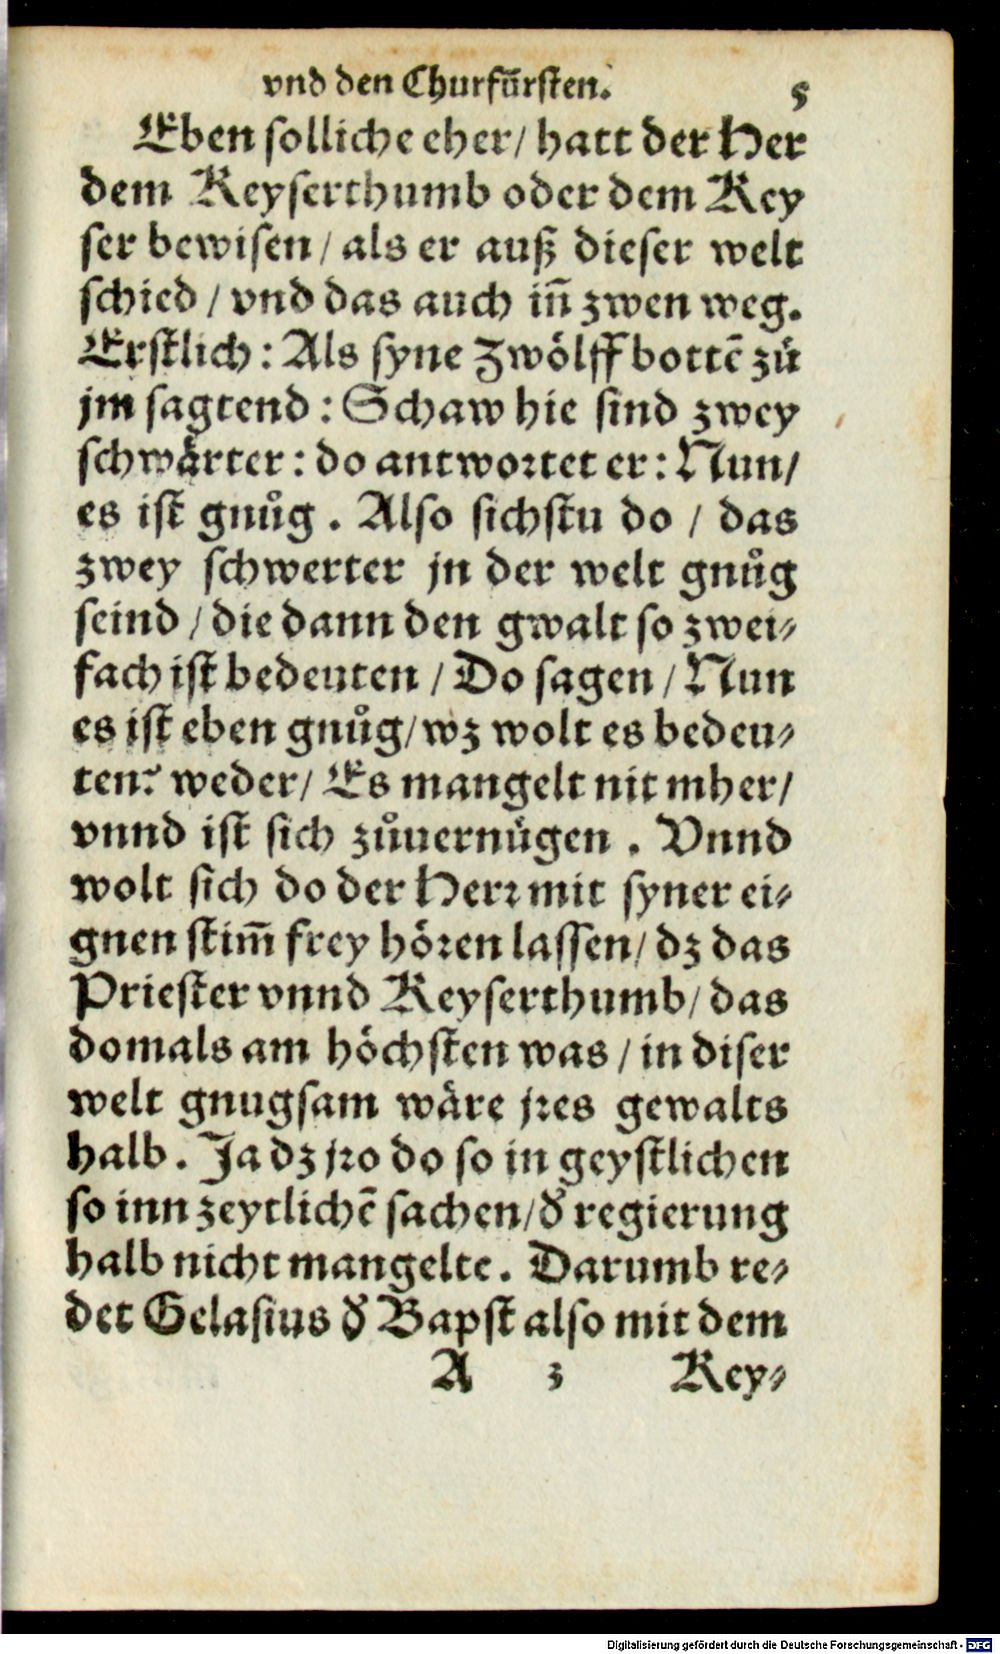 vnd den Churfürsten. 5
Eben solliche eher/ hatt der Her
dem Keyserthumb oder dem Key
ser bewisen/ als er auß dieser welt
schied/ vnd das auch iñ zwen weg.
Erstlich: Als syne Zwölff bottē zů
jm sagtend: Schaw hie sind zwey
schwärter: do antwortet er: Nun/
es ist gnůg. Also sichstu do/ das
zwey schwerter jn der welt gnůg
seind/ die dann den gwalt so zwei⸗
fach ist bedeuten/ Do sagen/ Nun
es ist eben gnůg/ wz wolt es bedeu⸗
ten? weder/ Es mangelt nit mher/
vnnd ist sich zůuernügen. Vnnd
wolt sich do der Herr mit syner ei⸗
gnen stim̃ frey hören lassen/ dz das
Priester vnnd Keyserthumb/ das
domals am höchsten was/ in diser
welt gnugsam wäre jres gewalts
halb. Ja dz jro do so in geystlichen
so inn zeytlichē sachen/ d̕ regierung
halb nicht mangelte. Darumb re⸗
det Gelasius d̕ Bapst also mit dem
A 3 Key⸗
Digitalisierung gefördert durch die Deutsche Forschungsgemeinschaft - DFG